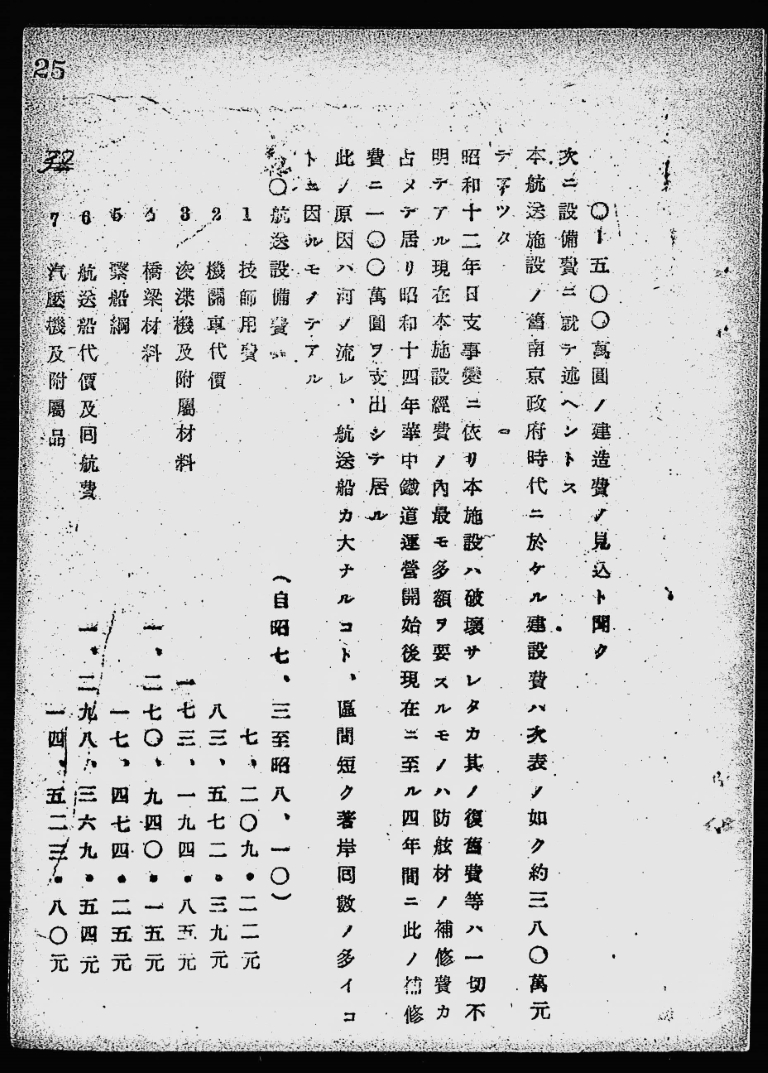 25
32
〇―五〇〇萬圓ノ建造費ノ見込ト聞ク
次ニ設備費ニ就テ述ヘントス
本航送施設ノ舊南京政府時代ニ於ケル建設費ハ次表ノ如ク約三八〇萬元
テアツタ
昭和十二年日支事變ニ依リ本施設ハ破壞サレタカ其ノ復舊費等ハ一切不
明テアル現在本施設經費ノ內最モ多額ヲ要スルモノハ防舷材ノ補修費カ
占メテ居リ昭和十四年華中鐵道運營開始後現在ニ至ル四年間ニ此ノ補修
費ニ一〇〇萬圓ヲ支出シテ居ル
此ノ原因ハ河ノ流レ、航送船カ大ナルコト、區間短ク著岸回數ノ多イコ
トニ因ルモノテアル
〇航送設備費 (自昭七、三至昭八、一〇)
1 技師用費 七、二〇九・二二元
2 機關車代價 八三、五七二・三九元
3 浚渫機及附屬材料 一七三、一九四・八五元
4 橋梁材料 一、二七〇、九四〇・一五元
5 繫船綱 一七、四七四・二五元
6 航送船代價及回航費 一、二九八、三六九・五四元
7 汽壓機及附屬品 一四、五二三・八〇元